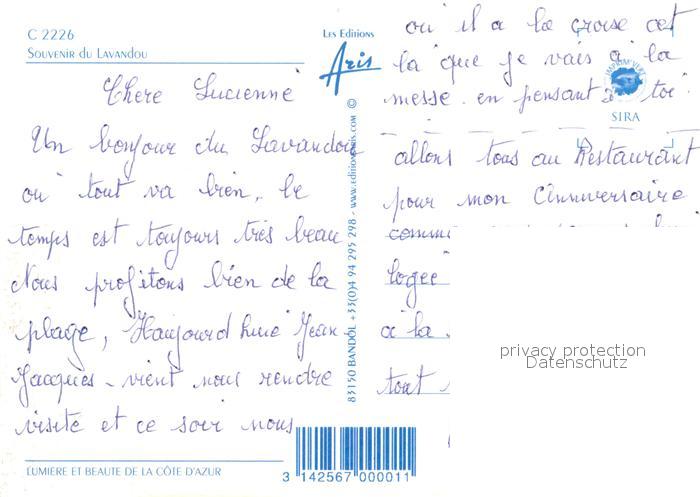 C 2226
SOUVENIR DU LAVANDOU
Chere Lucienne
Un bonjour du Lavandou
ou tout va bien, le
temps est toujours très beau
Nous profitons bien de la
plage, Haujourd huie Jean
Jacques - vient nous rendre
visite et ce soir nous
LUMIERE ET BEAUTE DE LA CÔTE D'AZUR
Les Editions
Aris
83150 BANDOL +33(0)4 94 295 298 - www.editionsaris.com ©
3 142567 000011
ou il a la croise cet
la que je vais a la
messe en pensant à toi
IMPRIM'VERT
SIRA
allons tous au Restaurant
pour mon Anniversaire
comme
logée
a la
tout
privacy protection
Datenschutz